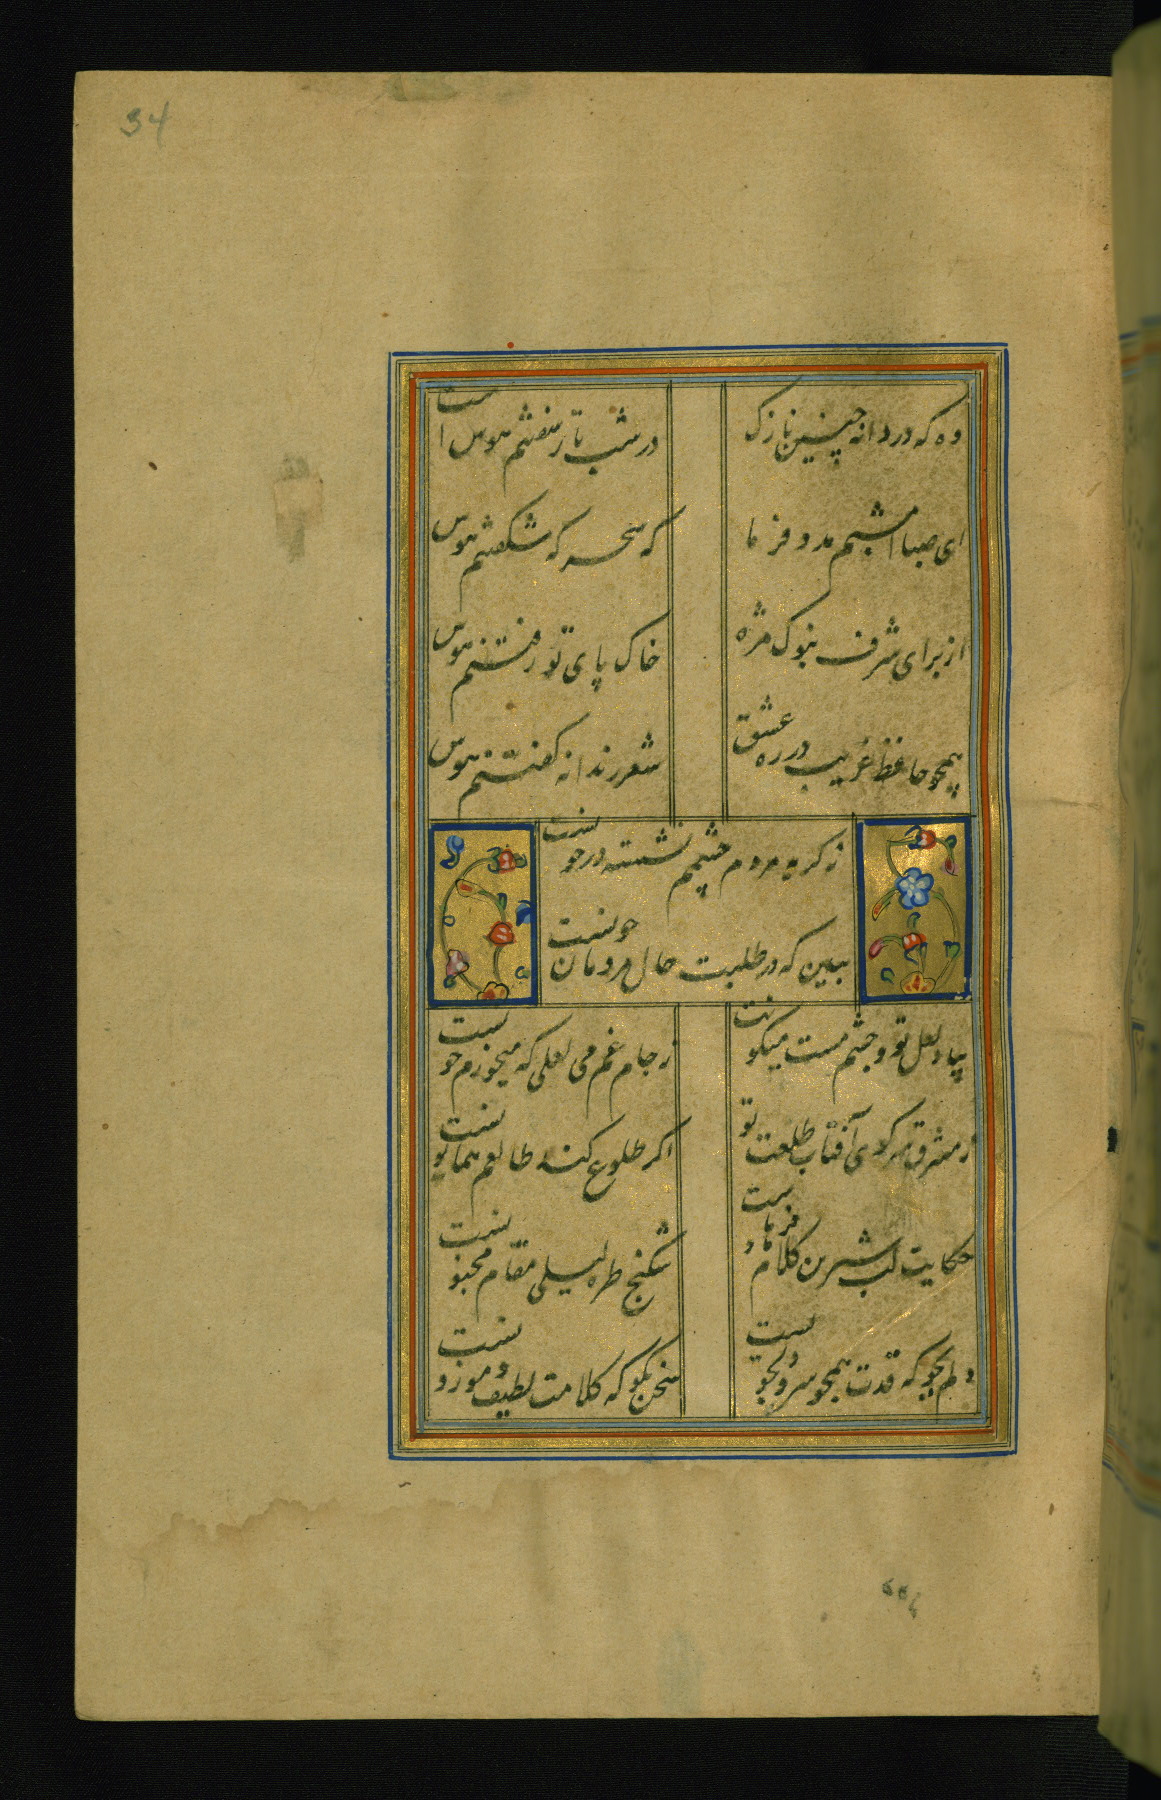 34
وه که دردانه چنین نازک
در شب تار سفتنم هوس است
ای صبا امشبم مدد فرما
که سحر که شکفتنم هوس
از برای شرف بنوک مژه
خاک پای تو رفتنم هوس
همچو حافظ غریب در ره عشق
شعر رندانه کفتنم هوس
ز کریه مردم چشمم نشسته در خونست
ببین که در طلبت حال مردمان چونست
بیاد لعل تو و چشم مست میکونت
ز جام غم می لعلی که میخورم خونست
ز مشرق سر کوی آفتاب طلعت تو
اکر طلوع کند طالعم همایونست
حکایت لب شیرین کلام فرهادست
شکنج طره لیلی مقام مجنونست
دلم بجو که قدت همچو سرو دلجویست
سخن بکو که کلامت لطیف و موزونست